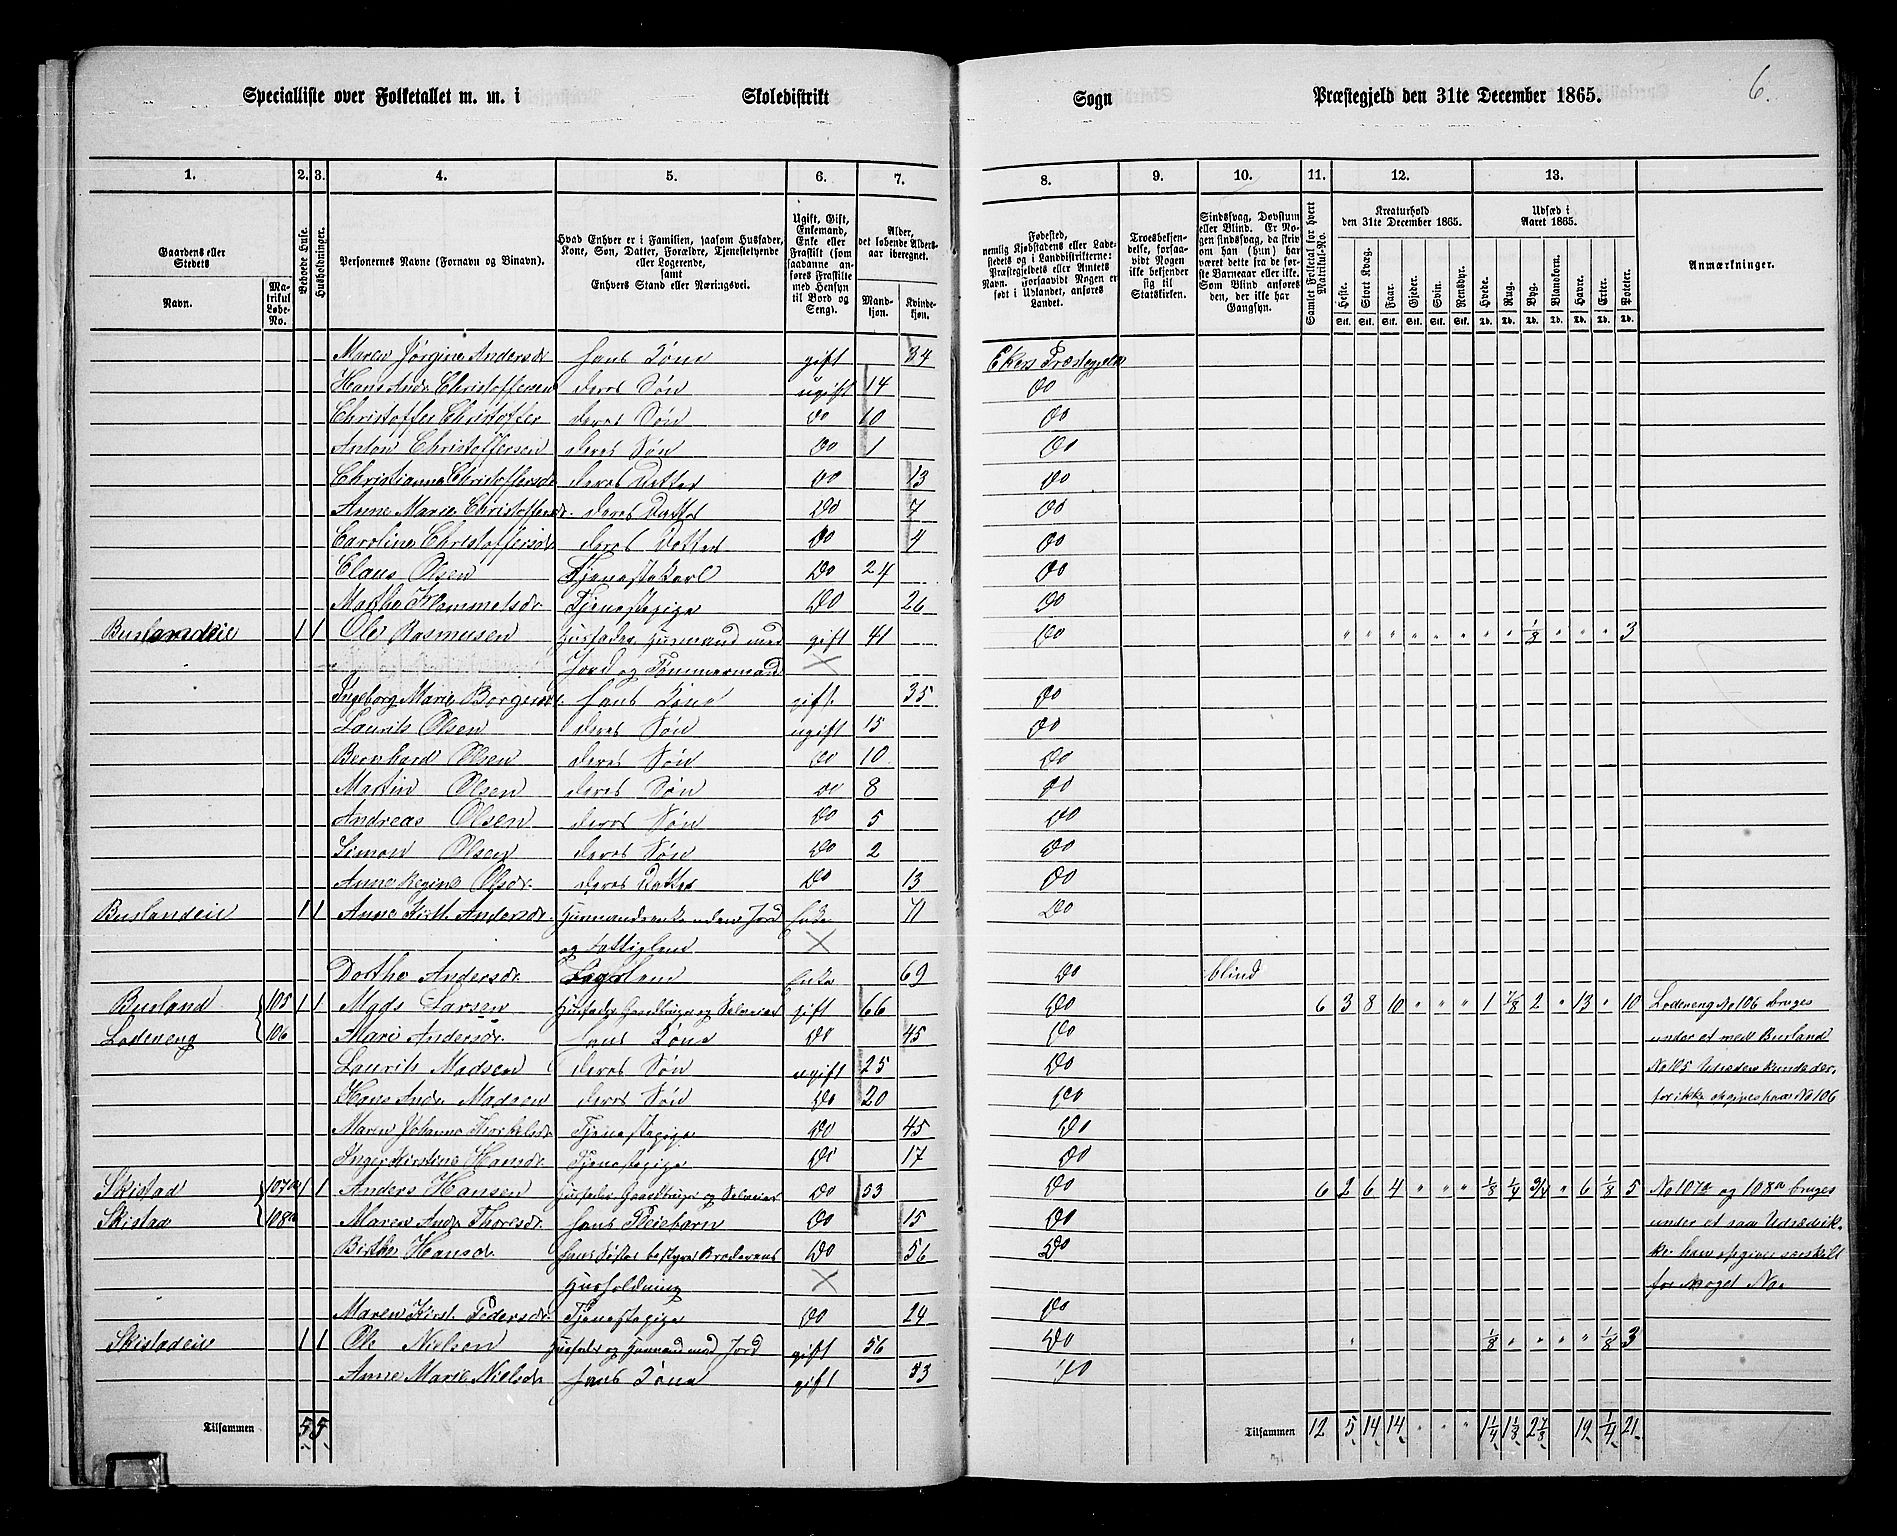 Specialliste over Folketallet m. m. i Skoledistrikt Sogn Præstegjeld den 31te December 1865. 6.
1. 2. 3. 4. 5. 6. 7. 8. 9. 10. 11. 12. 13.
Gaardens eller Stedets
Navn.
Matrikul Løbe-No.
Beboede Huse.
Husholdninger.
Personernes Navne (Fornavn og Binavn).
Hvad Enhver er i Familien, saasom Husfader, Kone, Søn, Datter, Forældre, Tjenestetyende eller Logerende,
samt
Enhvers Stand eller Næringsvei.
Ugift, Gift, Enkemand, Enke eller Frastilt (som saadanne anføres Frastilte med Hensyn til Bord og Seng).
Alder, det løbende Aldersaar iberegnet.
Mandkjøn.
Kvindekjøn.
Fødested, nemlig Kjøbstadens eller Ladestedets og i Landdistrikterne: Præstegjeldets eller Amtets Navn. Forsaavidt Nogen er født i Udlandet, anføres Landet.
Troesbekjendelse, forsaavidt Nogen ikke bekjender sig til Statskirken.
Sindssvag, Døvstum eller Blind. Er Nogen sindssvag, da skriv om han (hun) har været dette fra de første Barneaar eller ikke. Som Blind anføres den, der ikke har Gangsyn.
Samlet Folketal for hvert Matrikul-No.
Kreaturhold den 31te December 1865.
Heste. Stort Kvæg. Faar. Gjeder. Svin. Rensdyr.
Stk. Stk. Stk. Stk. Stk. Stk.
Udsæd i Aaret 1865.
Hvede. Rug. Byg. Blandkorn. Havre. Erter. Poteter.
Td. Td. Td. Td. Td. Td. Td.
Anmærkninger.
Maren Jørgine Andersdr hans Kone gift 34 Ekers Præstegjeld
Hans Andr. Christoffersen deres Søn ugift 14 Do
Christoffer Christoffer deres Søn Do 10 Do
Anton Christoffersen deres Søn Do 1 Do
Christianne Christoffersdr deres Datter Do 13 Do
Anne Marie Christoffersdr. deres Datter Do 7 Do
Caroline Christoffersdr deres Datter Do 4 Do
Claus Olsen Tjenestekarl Do 24 Do
Mathe Hammelsdr Tjenestepige Do 26 Do
Buslandeie 1 1 Ole Rasmusen Husfader Husmand med gift 41 Do " " " " " " " " 1/8 " " " 3
Jord og Tømmermand ×
Ingeborg Marie Borgersdr. hans Kone gift. 35 Do
Laurits Olsen deres Søn ugift 15 Do
Bernhard Olsen deres Søn Do 10 Do
Martin Olsen deres Søn Do 8 Do
Andreas Olsen deres Søn Do 5 Do
Simon Olsen deres Søn Do 2 Do
Anne Regine Olsdr. deres Datter Do 13 Do
Buslandeie 1 1 Anne Kirst. Andersdr. Husmandsenke uden Jord Enke 71 Do
og Fattiglem ×
Dorthe Andersdr Enke 69 Do blind
Busland 105 1 1 Mads Larsen Husfader Gaardbruger og Selveier gift 66 Do 6 3 8 10 " " " 1 7/8 2 " 13 " 10 Lodeneng No 106 bruges
Lodeneng 106 Mari Andersdr. hans Kone Do 45 Do under et med Busland
Laurits Madsen deres Søn ugift 25 Do No 105 Udsæden kunde der-
Hans Andr. Madsen deres Søn Do 20 Do for ikke opgives paa No 106
Maren Johanne Thorkelsdr Tjenestepige Do 45 Do
Inger Kirstine Hansdr. Tjenestepige Do 17 Do
Skistad 107a 1 1 Anders Hansen Husfader Gaardbruger og Selveier Do 53 Do 6 2 6 4 " " " 1/8 1/4 3/4 " 6 1/8 5 No 107a og 108a bruges
Skistad 108a Maren Andr. Thoresdr. hans Pleiebarn Do 15 Do under et saa Udsæd ik-
Birthe Hansdr. hans Søster bestyrer Broderens Do 56 Do ke kan opgives særskilt
Husholdning × for noget No.
Maren Kirst. Pedersdr. Tjenestepige Do 24 Do
Skistadeie 1 1 Ole Nielsen Husfader og Husmand med Jord gift 56 Do " 1/8 " " " " 1/8 3
Anne Marie Nielsdr hans Kone gift 53 Do
Tilsammen 5 5 Tilsammen 12 5 14 14 " " " 1 1/4 1 1/8 2 7/8 19 1/4 21